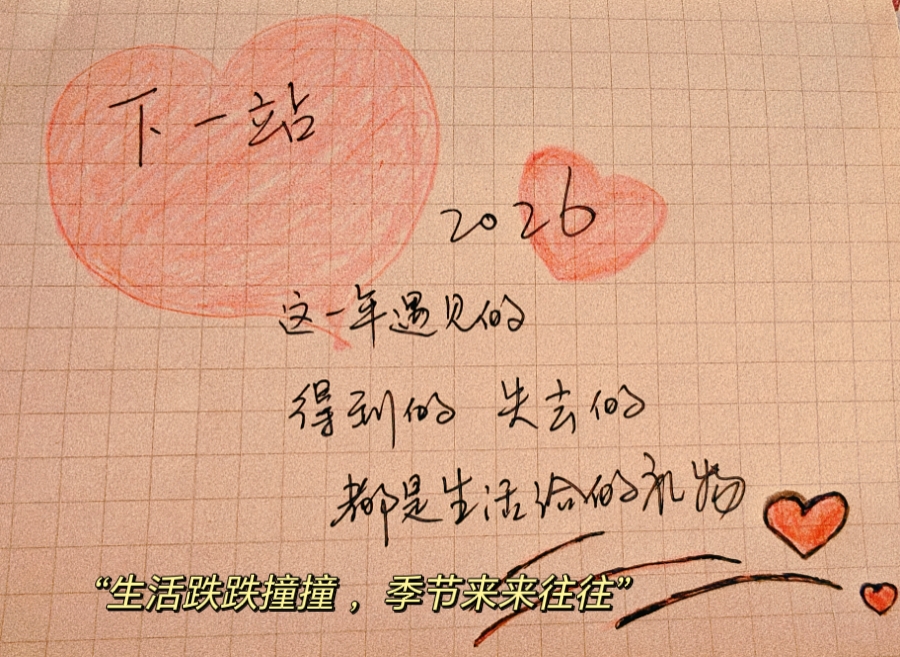 下一站
2026
这一年遇见的
得到的 失去的
都是生活给的礼物
“生活跌跌撞撞，季节来来往往”